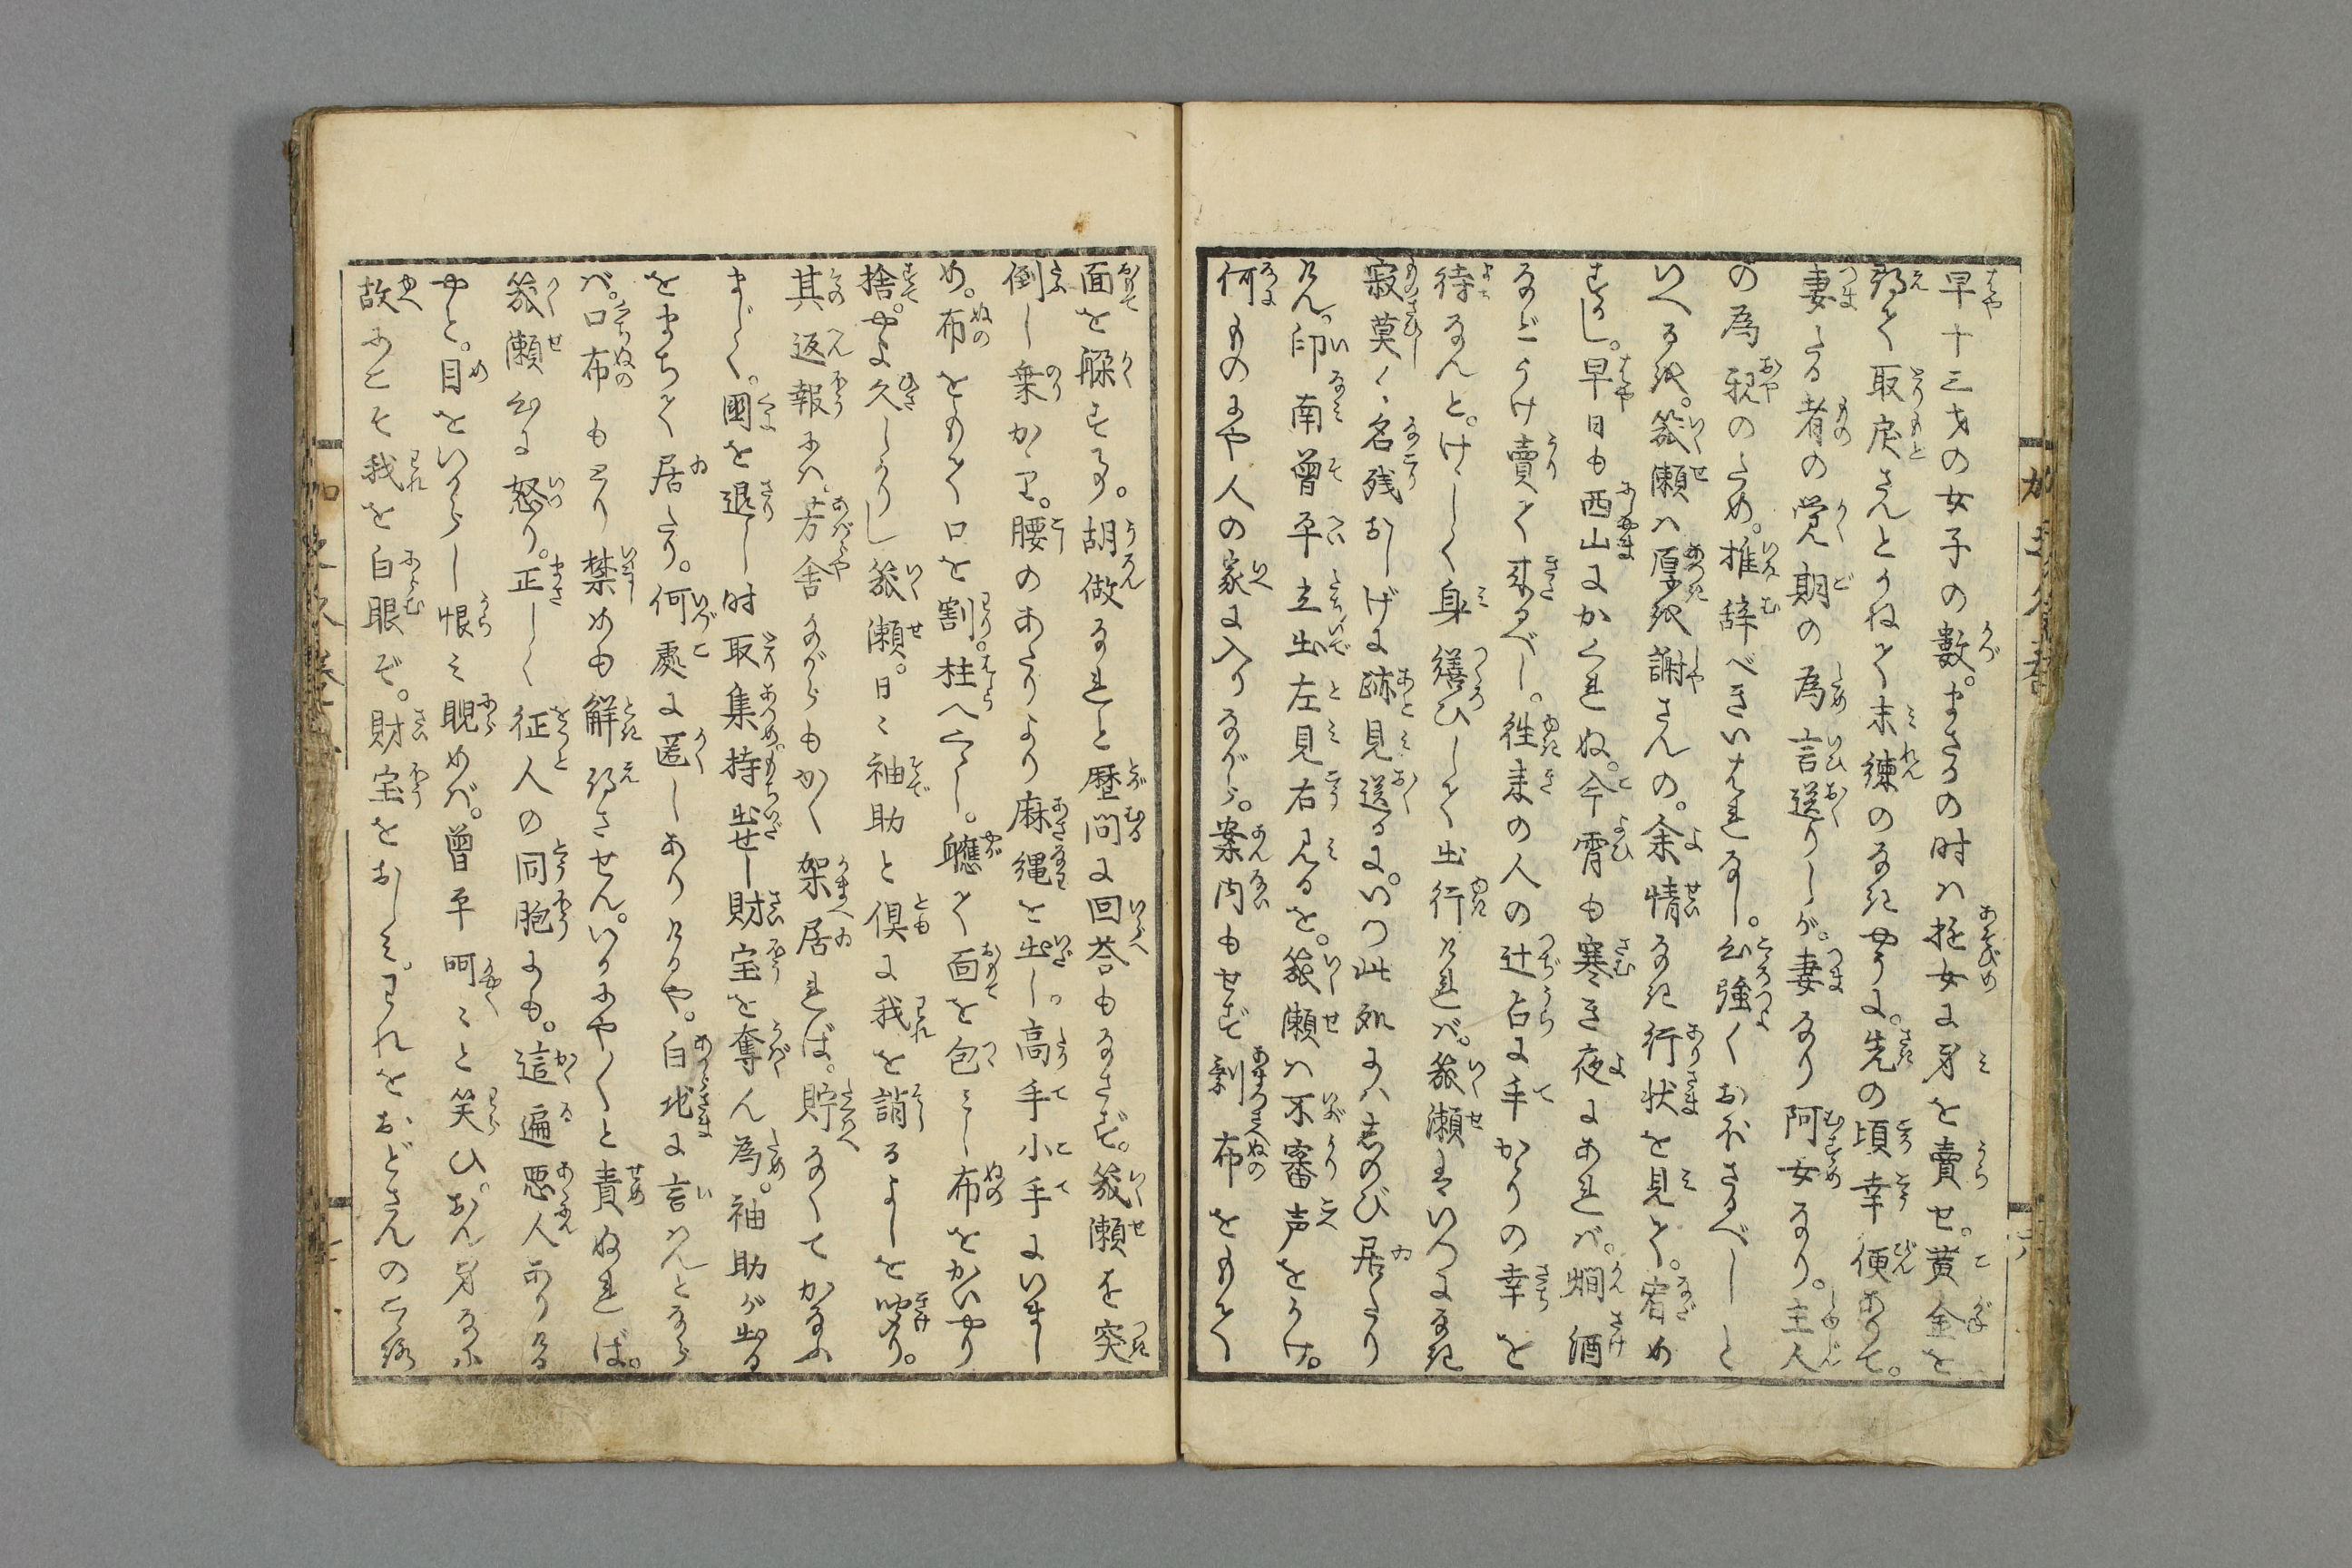 早十三才の女子の數。まさかの时は遊女に身を賣せ。黄金を
得て取戻さんとかねて未練のなきやうに。先の頃幸便ありて。
妻たる者の覚期の為言送りしが。妻なり阿女なり。主人
の為親のため。推辞べきいはれなし。心強くおぼさるべしと
いへるを。筬瀬は厚を謝さんの。余情なき行状を見て。宥め
すかし。早日も西山にかくれぬ。今霄も寒き夜にあれば。燗酒
などうけ賣て来るべし。徃来の人の辻占に手がゝりの幸を
待なんと。けゝしく身繕ひして出行ければ。筬瀬はいつになき
寂莫く名残おしげに跡見送るに。いつ此処には忍び居たり
けん。印南曾平立出左見右見るを。筬瀬は不審声をかけ。
何ものにや人の家に入りながら。案内もせず剰布をもて
面を躱する。胡做なれと歴問に回荅もなさず。筬瀬を突
倒し乗かゝり。腰のあたりより麻縄を出し。高手小手にいまし
め。布をもて口を割。柱へくゝし。軈て面を包みし布をかいやり
捨。やよ久しかりし筬瀬。日々袖助と倶に我を誚るよしを聞けり。
其返報には。芳舎ながらもかく架居れば。貯なくてかなふ
まじく。國を退し时取集持出せし財宝を奪ん為。袖助が出る
をまちて居たり。何處に匿しありけるや。白地に言はんとなら
ば。口布もとり禁めも解得させん。いかにや〳〵と責ぬれば。
筬瀬心に怒り。正しく征人の同胞にも。這遍悪人ありける
やと。目をいからし恨み睨めば。曾平呵々と笑ひ。おん身なふ
故にこそ我を白眼ぞ。財宝をおしみ。われをおどさんの心歟